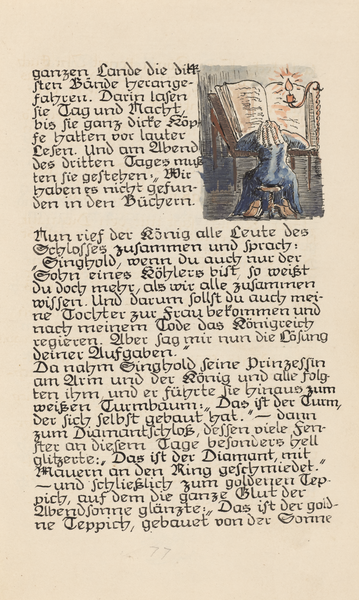 ganzen Lande die dikk
sten Bände herange-
fahren. Darin lasen
sie Tag und Nacht,
bis sie ganz dicke Köp-
fe hatten vor lauter
Lesen. Und am Abend
des dritten Tages muß
ten sie gestehen: „Wir
haben es nicht gefun-
den in den Büchern.
Nun rief der König alle Leute des
Schlosses zusammen und sprach:
„Singhold, wenn du auch nur der
Sohn eines Köhlers bist, so weißt
du doch mehr, als wir alle zusammen
wissen. Und darum sollst du auch mei-
ne Tochter zur Frau bekommen und
nach meinem Tode das Königreich
regieren. Aber sag mir nun die Lösung
deiner Aufgaben.
Da nahm Singhold seine Prinzessin
am Arm und der König und alle folg-
ten ihm, und er führte sie hinaus zum
weißen Turmbaum: „Das ist der Turm,
der sich selbst gebaut hat." — dann
zum Diamantschloß, dessen viele Fen-
ster an diesem Tage besonders hell
glitzerte: „Das ist der Diamant, mit
Mauern an den Ring geschmiedet."
— und schließlich zum goldenen Tep-
pich, auf dem die ganze Glut der
Abendsonne glänzte: „Das ist der gold-
ne Teppich, gebauet von der Sonne
77